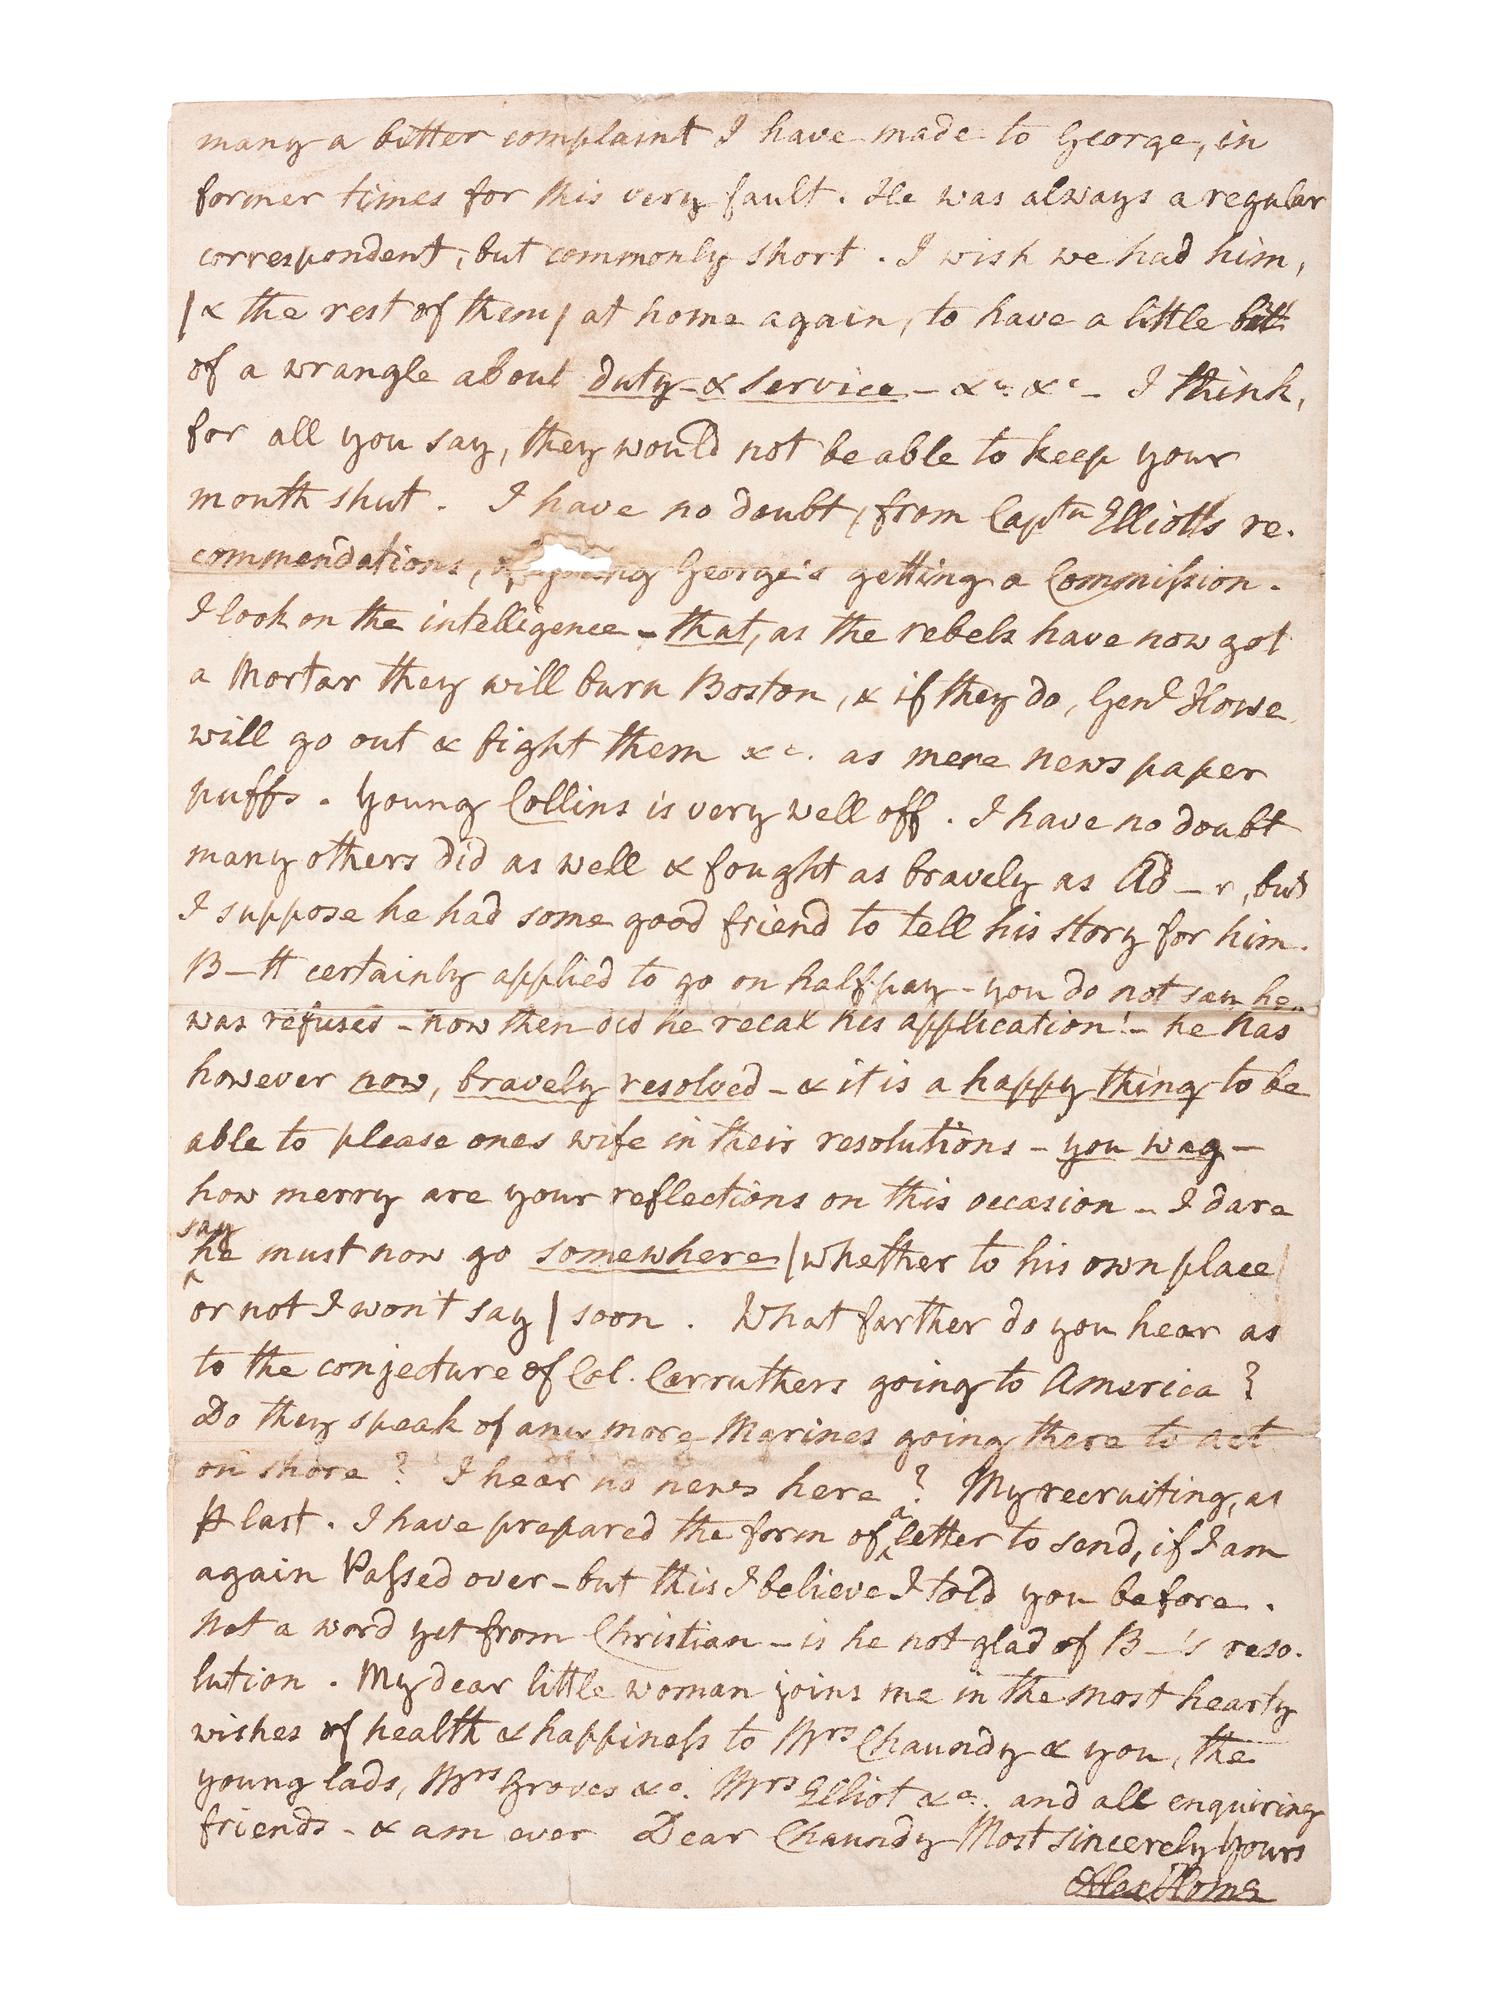 many a bitter complaint I have made to George, in
former times for this very fault. He was always a regular
correspondent, but commonly short. I wish we had him,
/& the rest of them/ at home again, to have a little bit
of a wrangle about duty - & service - &c. &c - I think,
for all you say, they would not be able to keep your
mouth shut. I have no doubt, from Captn Elliotts re.
commendations, of George's getting a Commission.
I look on the intelligence - that, as the rebels have now got
a Mortar they will burn Boston, & if they do, Genl Howe
will go out & fight them &c. as mere news paper
puffs. Young Collins is very well off. I have no doubt
many others did as well & fought as bravely as Ad—r, but
I suppose he had some good friend to tell his story for him.
B—tt certainly applied to go on half pay - you do not say he
was refused - how then did he recal his application! - he has
however now, bravely resolved - & it is a happy thing to be
able to please ones wife in their resolutions - you wag -
how merry are your reflections on this occasion - I dare
say
he must now go somewhere /whether to his own place/
or not I won't say/ soon. What farther do you hear as
to the conjecture of Col. Carruthers going to America?
Do they speak of any more Marines going there to act
on shore? I hear no news here? My recruiting, as
P last. I have prepared the form of a letter to send, if I am
again Passed over - but this I believe I told you before.
Not a word yet from Christian - is he not glad of B—'s reso.
lution. My dear little woman joins me in the most hearty
wishes of health & happiness to Mrs Chaundy & you, the
young lads, Mrs Groves &c. Mrs Elliot &c. and all enquiring
friends - & am ever Dear Chaundy Most sincerely Yours
Alex Home